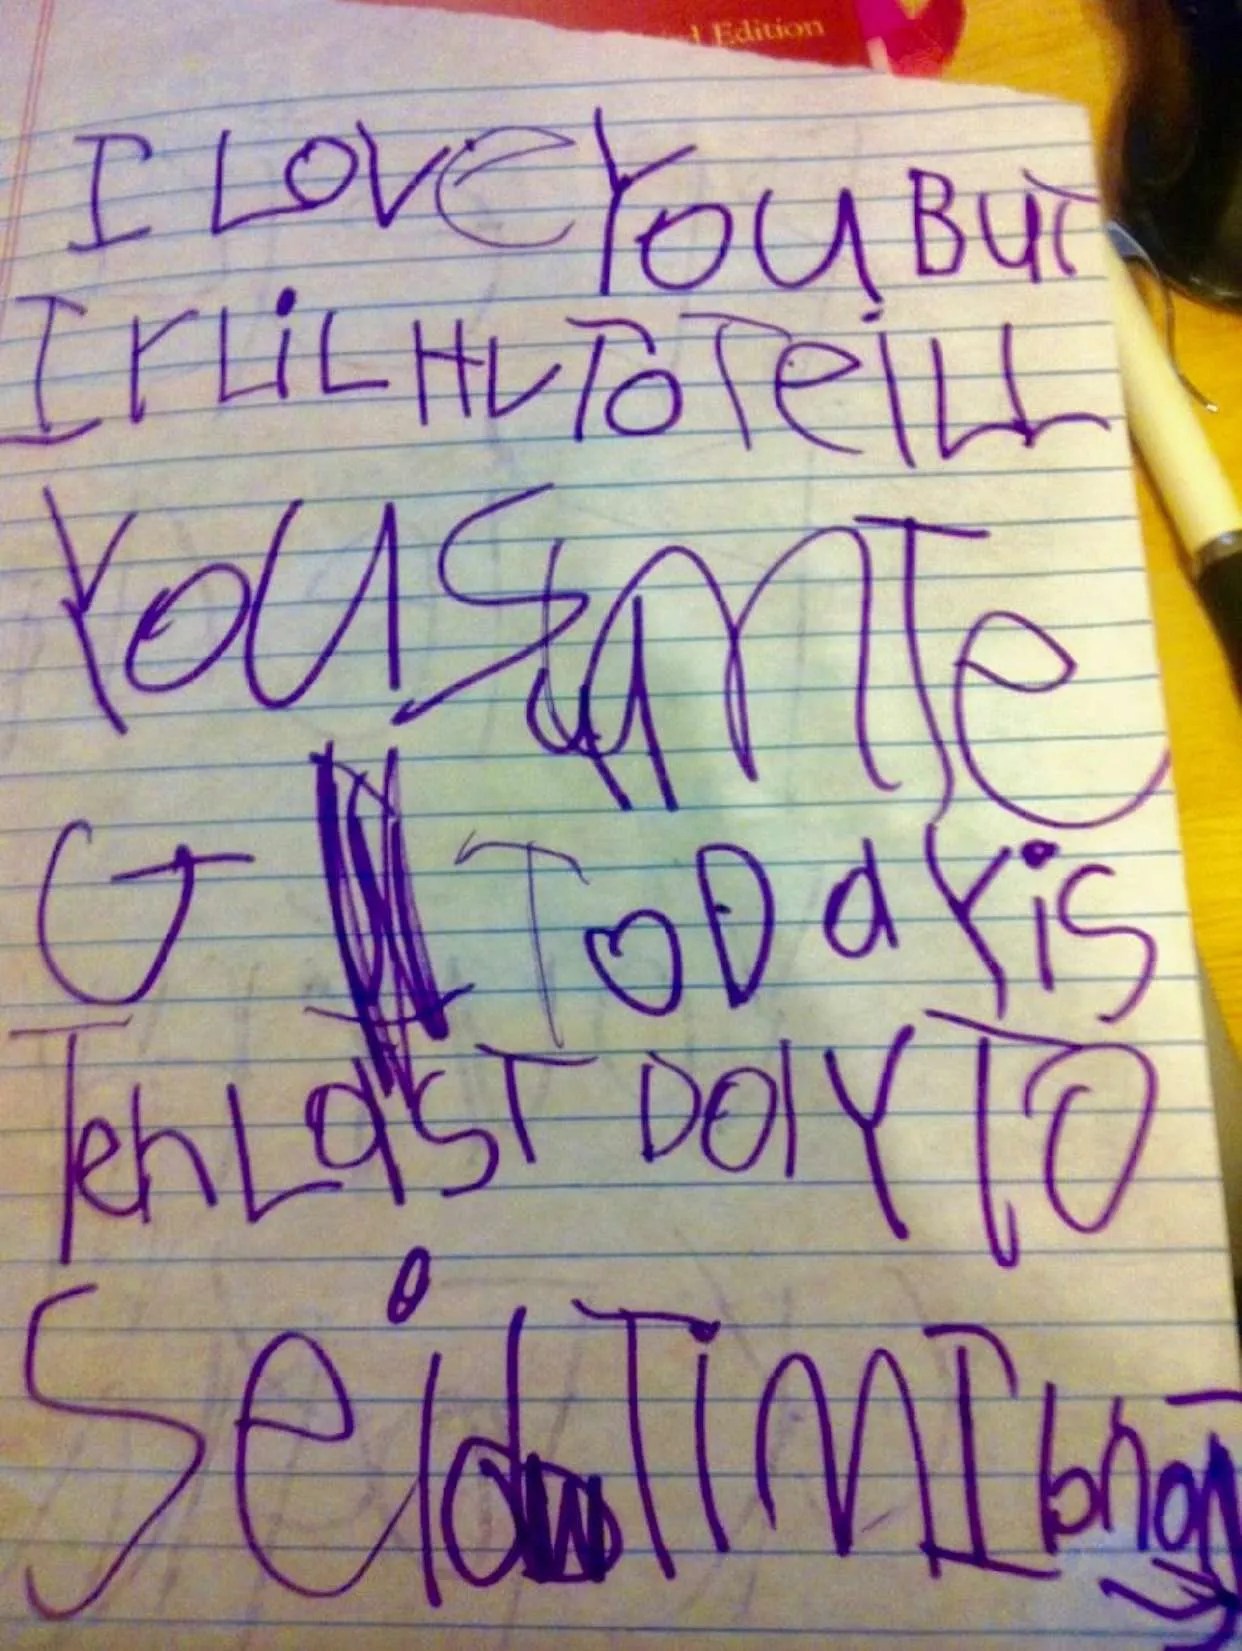 Edition
I LOVe YOU BUT
I rLiL HV To TeiLL
YOU SumTe
G ToDaY is
Teh LaST DaIY TO
Seid TiM I bnoT
→